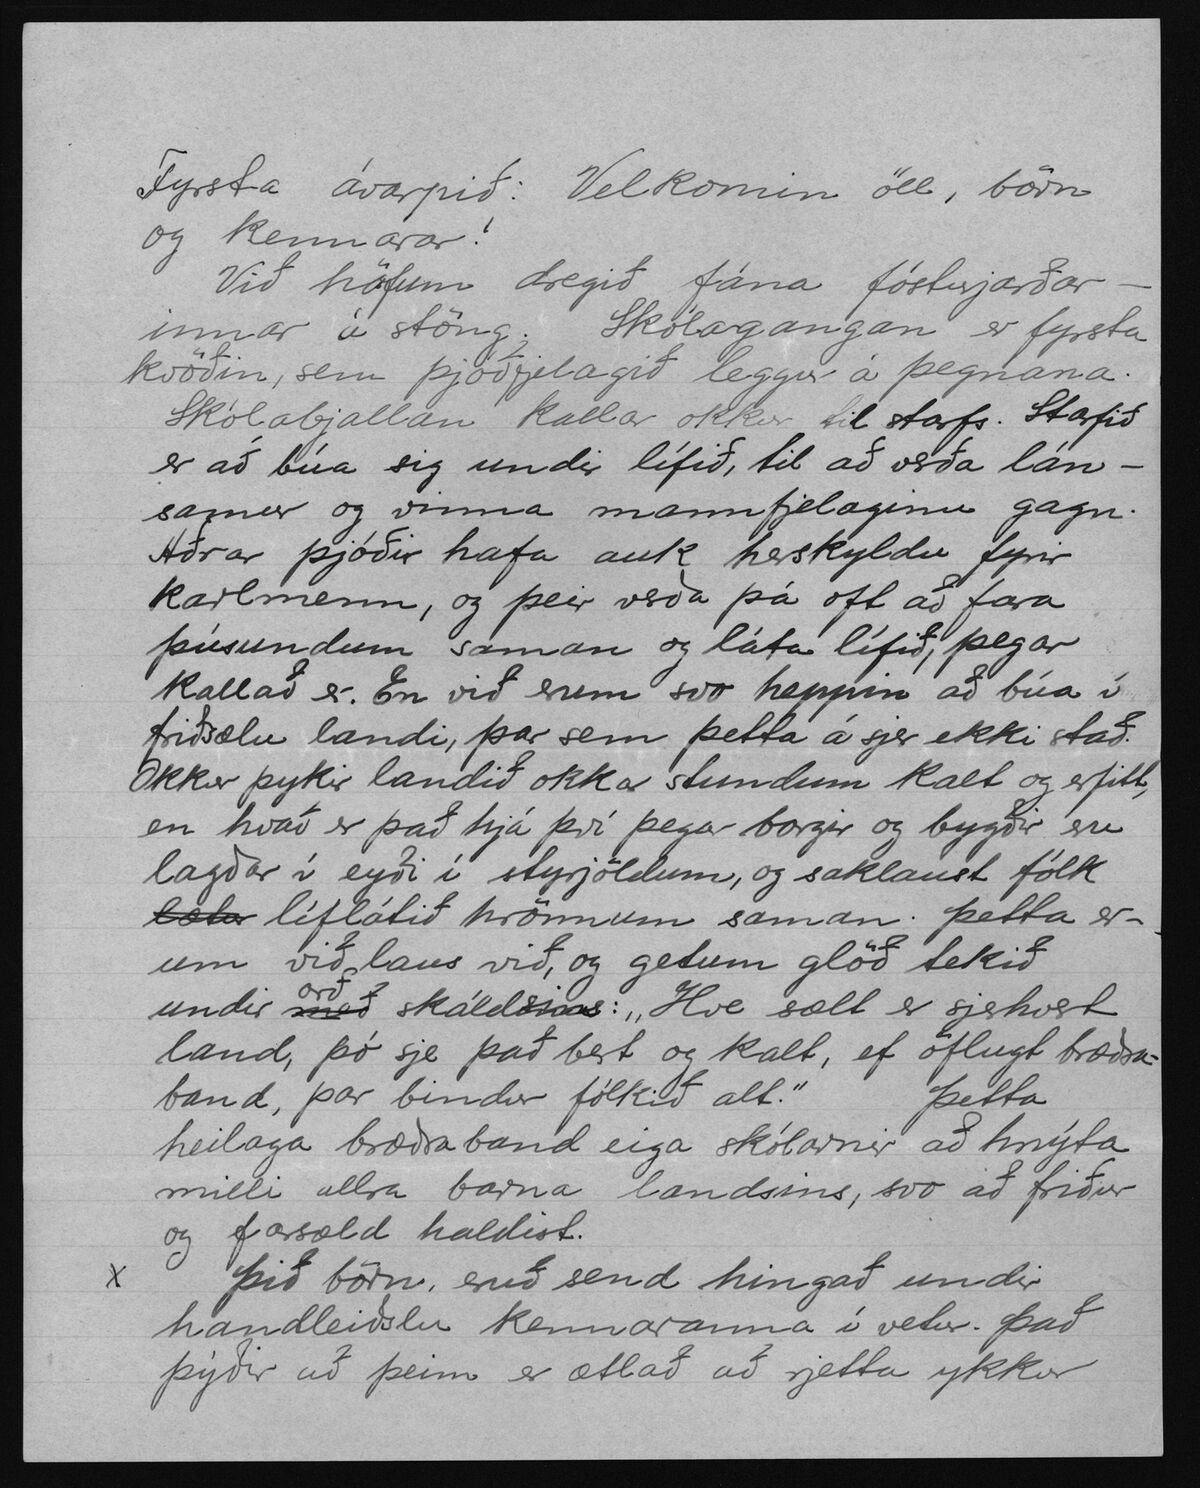 Fyrsta ávarpið: Velkomin öll, börn
og kennarar!
Við höfum dregið fána fósturjarðar-
innar á stöng. Skólagangan er fyrsta
kvöðin, sem þjóðfjelagið leggur á þegnana.
Skólabjallan kallar okkur til starfs. Starfið
er að búa sig undir lífið, til að verða lán-
samur og vinna mannfjelaginu gagn.
Aðrar þjóðir hafa auk herskyldu fyrir
karlmenn, og þeir verða þá oft að fara
þúsundum saman og láta lífið, þegar
kallað er. En við erum svo heppin að búa í
friðsælu landi, þar sem þetta á sjer ekki stað.
Okkur þykir landið okkar stundum kalt og erfitt,
en hvað er það hjá því þegar borgir og bygðir eru
lagðar í eyði í styrjöldum, og saklaust fólk
líflátið hrönnum saman. Þetta er-
um við laus við, og getum glöð tekið
undir orð skáldsins: „Hve sælt er sjerhvert
land, þó sje það bert og kalt, ef öflugt bræðra-
band, þar bindur fólkið alt.“ Þetta
heilaga bræðraband eiga skólarnir að hnýta
milli allra barna landsins, svo að friður
og farsæld haldist.
x Þið börn, eruð send hingað undir
handleiðslu kennaranna í vetur. Það
þýðir að þeim er ætlað að rjetta ykkur